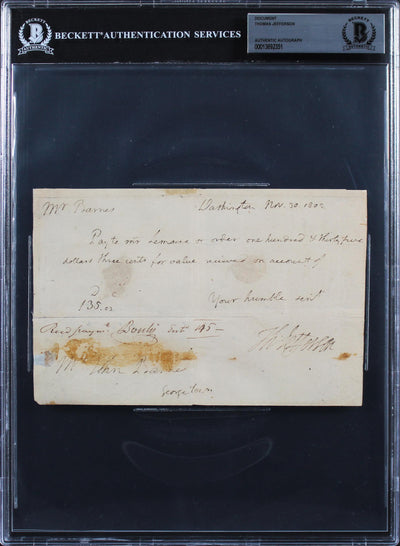 BECKETT
B
AUTHENTICATION
SERVICES
BECKETT® AUTHENTICATION SERVICES
DOCUMENT
THOMAS JEFFERSON
AUTHENTIC AUTOGRAPH
00013692351
BECKETT
B
AUTHENTICATION
SERVICES
Mr Barnes Washington Nov. 30 1802
Pay to mr Lemaire or order one hundred & thirty five
dollars three cents for value recieved on account of
D
135.02 Your humble servt
Th Jefferson
45-
Mr John
Georgetown